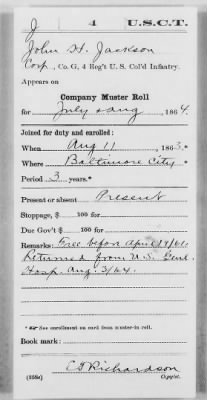 J 4 U.S.C.T.
John H. Jackson
Corp., Co. G, 4 Reg't U. S. Col'd Infantry.
Appears on
Company Muster Roll
for July & Aug, 1864.
Joined for duty and enrolled:
When Aug 11, 1863.*
Where Baltimore City*
Period 3 years.*
Present or absent Present
Stoppage, $ 100 for
Due Gov't $ 100 for
Remarks: Free before April 19/61.
Returned from U.S. Genl.
Hosp. Aug. 3/64.
* See enrollment on card from muster-in roll.
Book mark:
E D Richardson
(358c) Copyist.